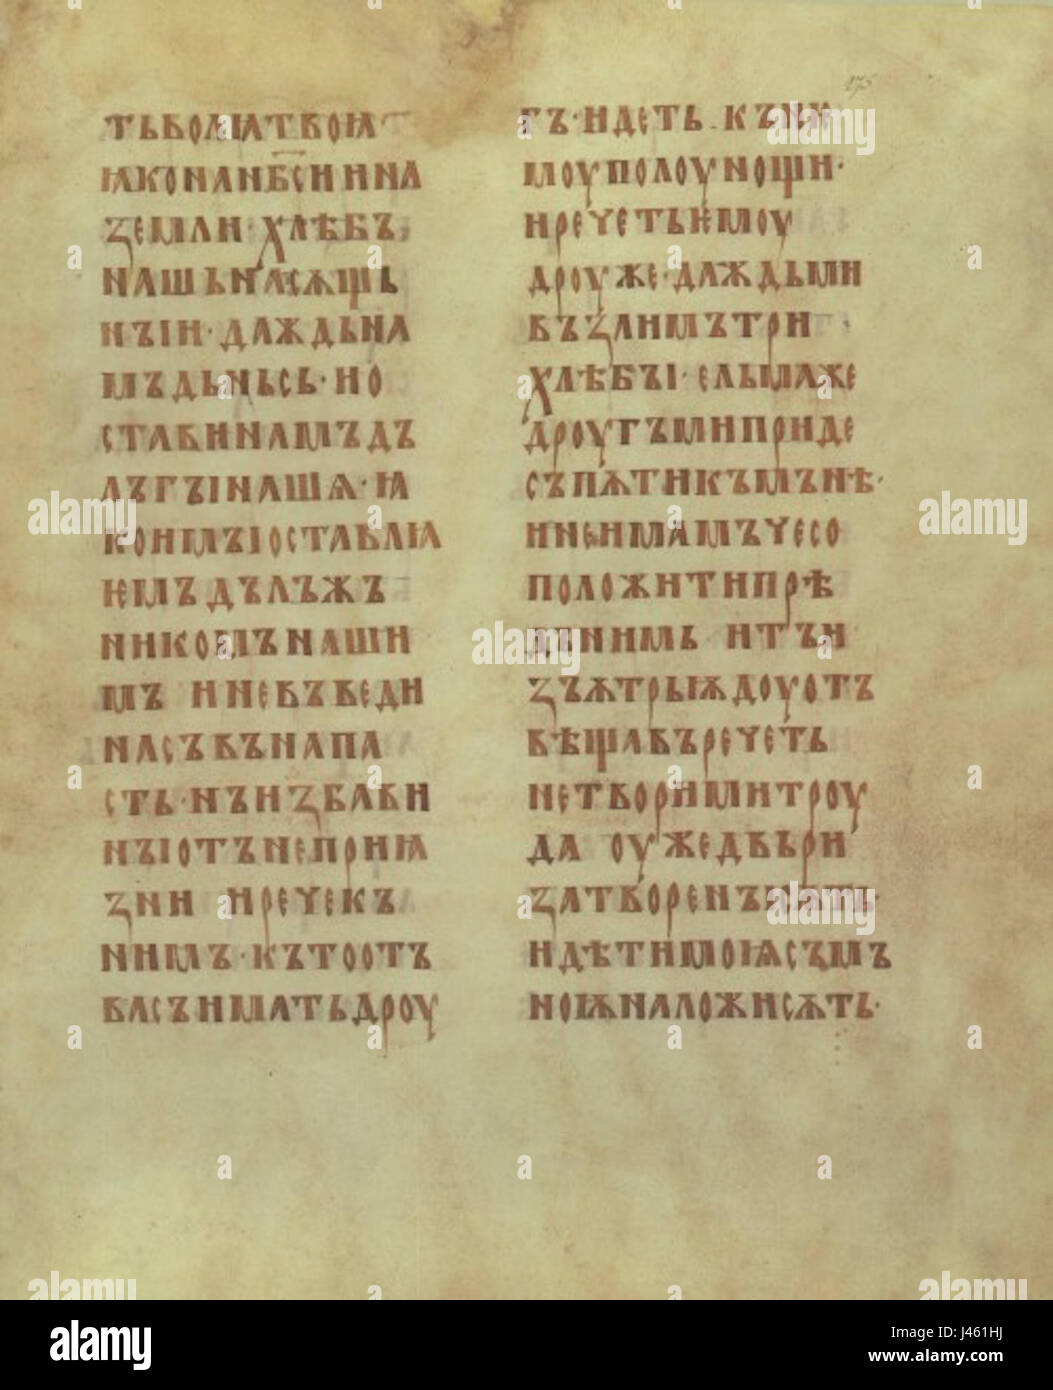 175
тьволꙗтвоꙗ
ꙗконанб҃сиина
земли·хлѣбъ
нашьнасѫщь
нꙑи·даждьна
мъдьньсь·но
ставинамъдъ
лъгꙑнашѧ·ꙗ
коимꙑоставлꙗ
ѥмъдълъжъ
никомънаши
мъ иневъведи
насъвънапа
сть·нъизбави
нꙑотънеприꙗ
зни иречекъ
нимъ·кътоотъ
васъиматьдроу
гъ·идеть къне
моуполоунощи·
иречетьѥмоу
дроуже·даждьми
възаимътри
хлѣбꙑ·ельмаже
дроугъмиприде
съпѫтикъмънѣ·
инеимамъчесо
положитипрѣ
дьнимь итъи
зъѫтрьѭдоуотъ
вѣщавъречеть
нетворимитроу
да оужедвьри
затворенꙑсѫть·
идѣтимоꙗсъмъ
ноѭналожисѫть·
alamy
Image ID: J461HJ
www.alamy.com